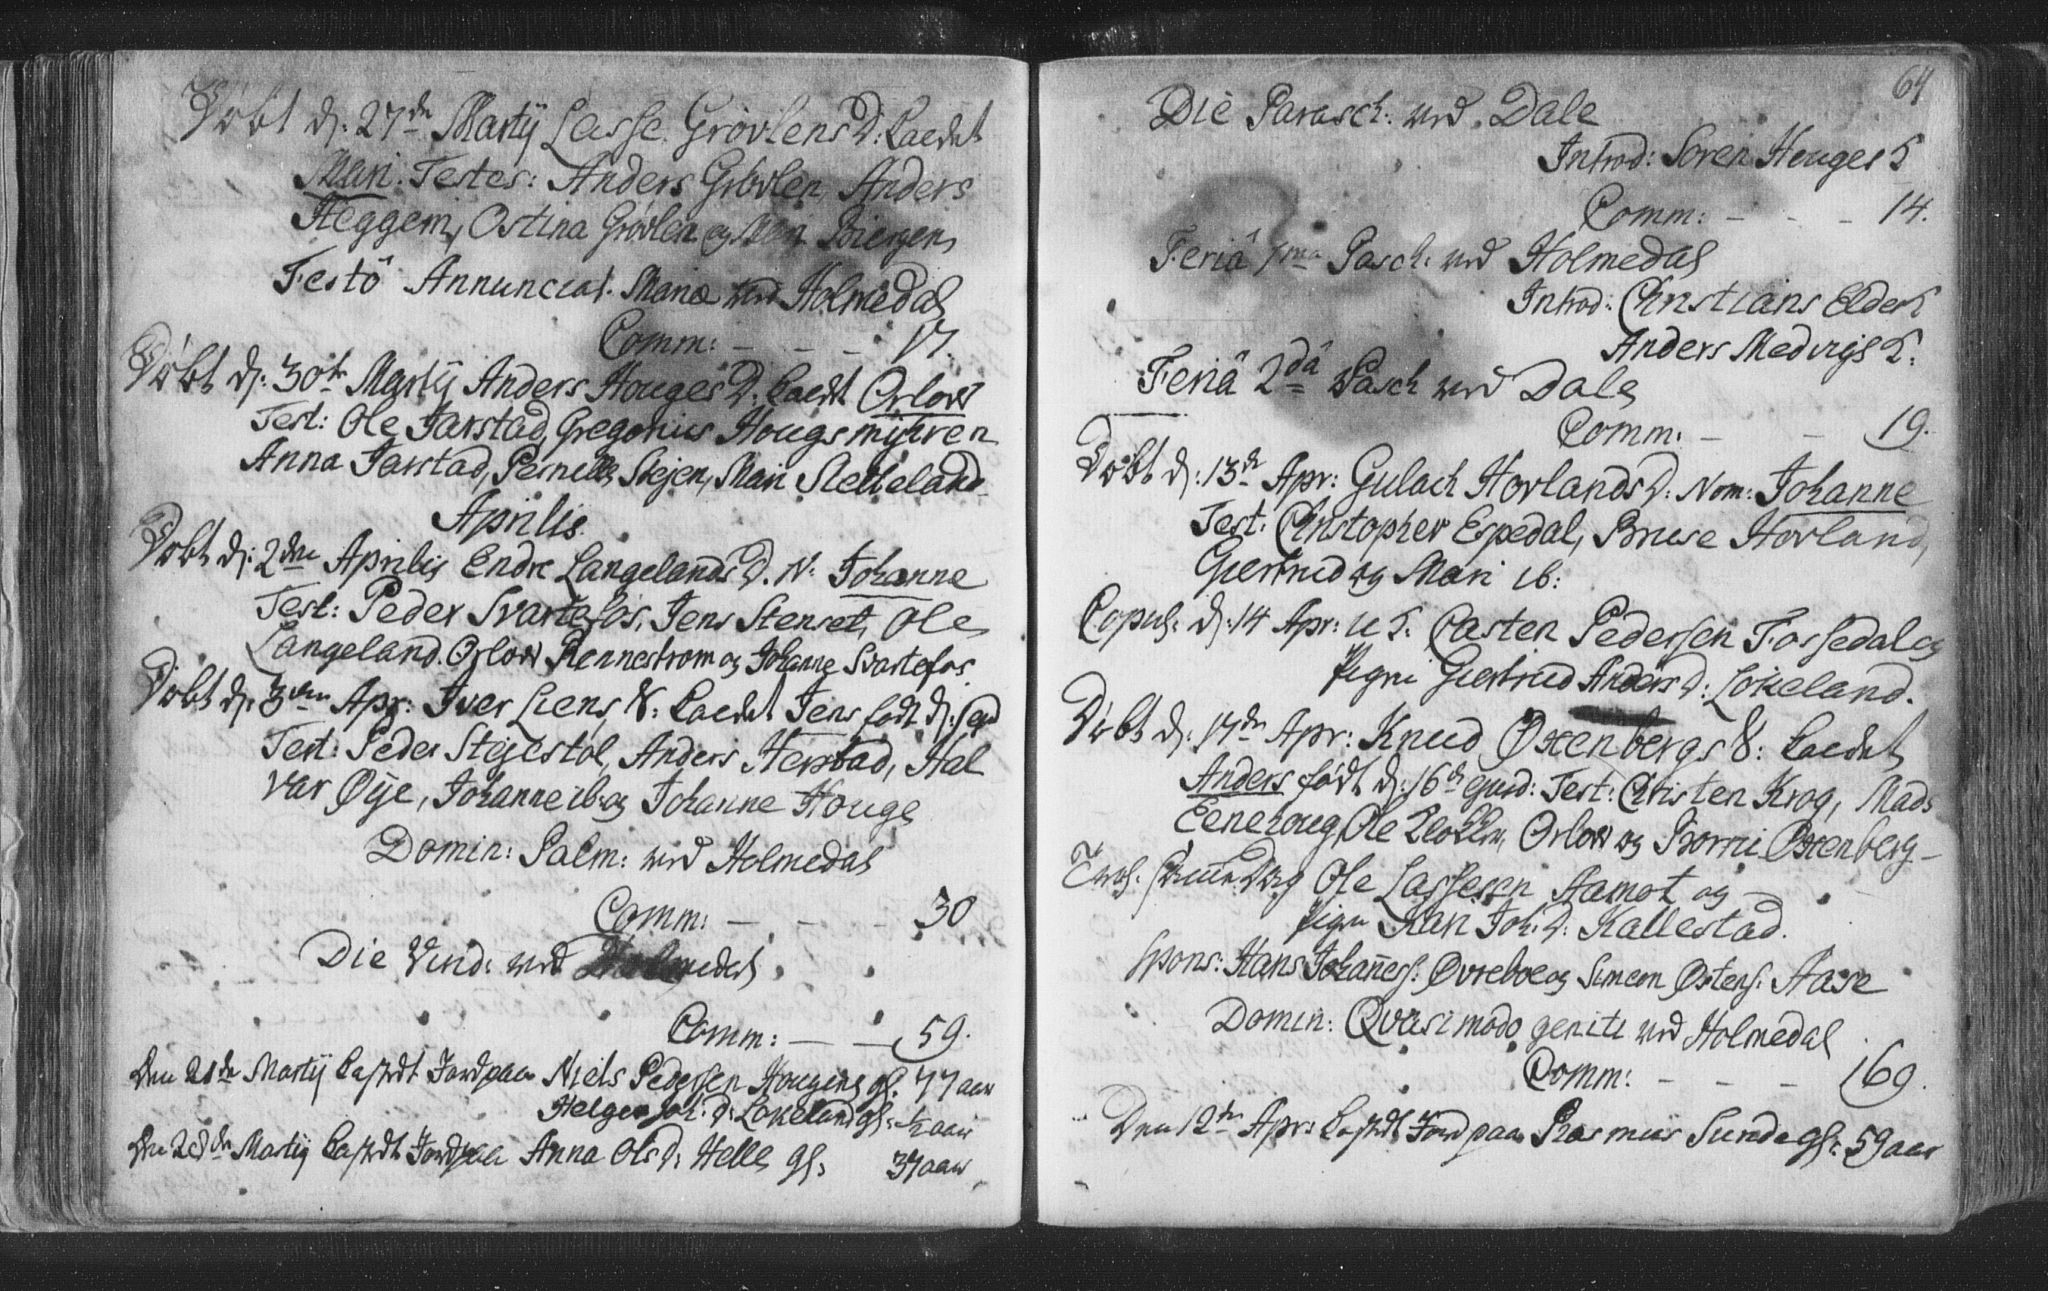 Døbt d: 27de Martij Lasse Grøvlens D: kaldet
Mari. Testes: Anders Grøvlen, Anders
Heggem, Ostina Grøvlen og Mari Biergen
Festô Annunciat. Mariæ ved Holmedal
Comm: - - - 17.
Døbt d: 30te Martij Anders Houges D: kaldt Orlow
Test: Ole Jarstad, Gregorius Hougsmyhren
Anna Jarstad, Pernille Stejen, Mari Sletteland
Aprilis.
Døbt d: 2den Aprilis Endre Langelands D. N: Johanne
Test: Peder Svartefos, Jens Stenset, Ole
Langeland. Orlow Rennestrom og Johanne Svartefos
Døbt d: 3den Apr: Iver Liens S: kaldet Jens født d:
Test: Peder Stejestol, Anders Herstad, Hal
var Øye, Johanne ib: og Johanne Houge
Domin: Palm: ved Holmedal
Comm: - - - 30
Die Virid: ved Holmedal
Comm: - - 59.
Den 21de Martij kastedt Jord paa Niels Pedersen Hougens gl: 77 aar
Helge Joh: D: Lokeland gl: 1/2 aar
Den 28de Martij kastedt Jord paa Anna Ols D: Helle gl: 37 aar
64
Die Parasch: ved Dale
Introd: Soren Houges K
Comm: - - - 14.
Feriâ 1ma Pasch: ved Holmedal
Introd: Christians Elde K
Anders Medvigs K:
Feriâ 2dâ Pasch ved Dale
Comm: - - 19.
Døbt d: 13de Apr: Gulach Hovlands D: Nom: Johanne
Test: Christopher Espedal, Bruse Hovland,
Giertrud og Mari ib:
Copul: d: 14 Apr: u K. Casten Pedersen Fossedal og
Pigen Giertrud Anders D: Lokeland.
Døbt d: 17de Apr: Knud Oxenbergs S: kaldet
Anders født d: 16de ejusd: Test: Christen Krog, Mads
Eenehoug, Ole Klokker, Orlow og Borni Oxenberg
Trol. samme Dag Ole Lassesen Aamot og
Pigen Kari Joh: D: Kallestad.
Spons: Hans Johanness: Øvreboe og Simeon Østens: Aase
Domin: Qvasimodogeniti ved Holmedal
Comm: - - - 69.
Den 12te Apr: kastedt Jord paa Rasmus Sunde gl: 59 aar